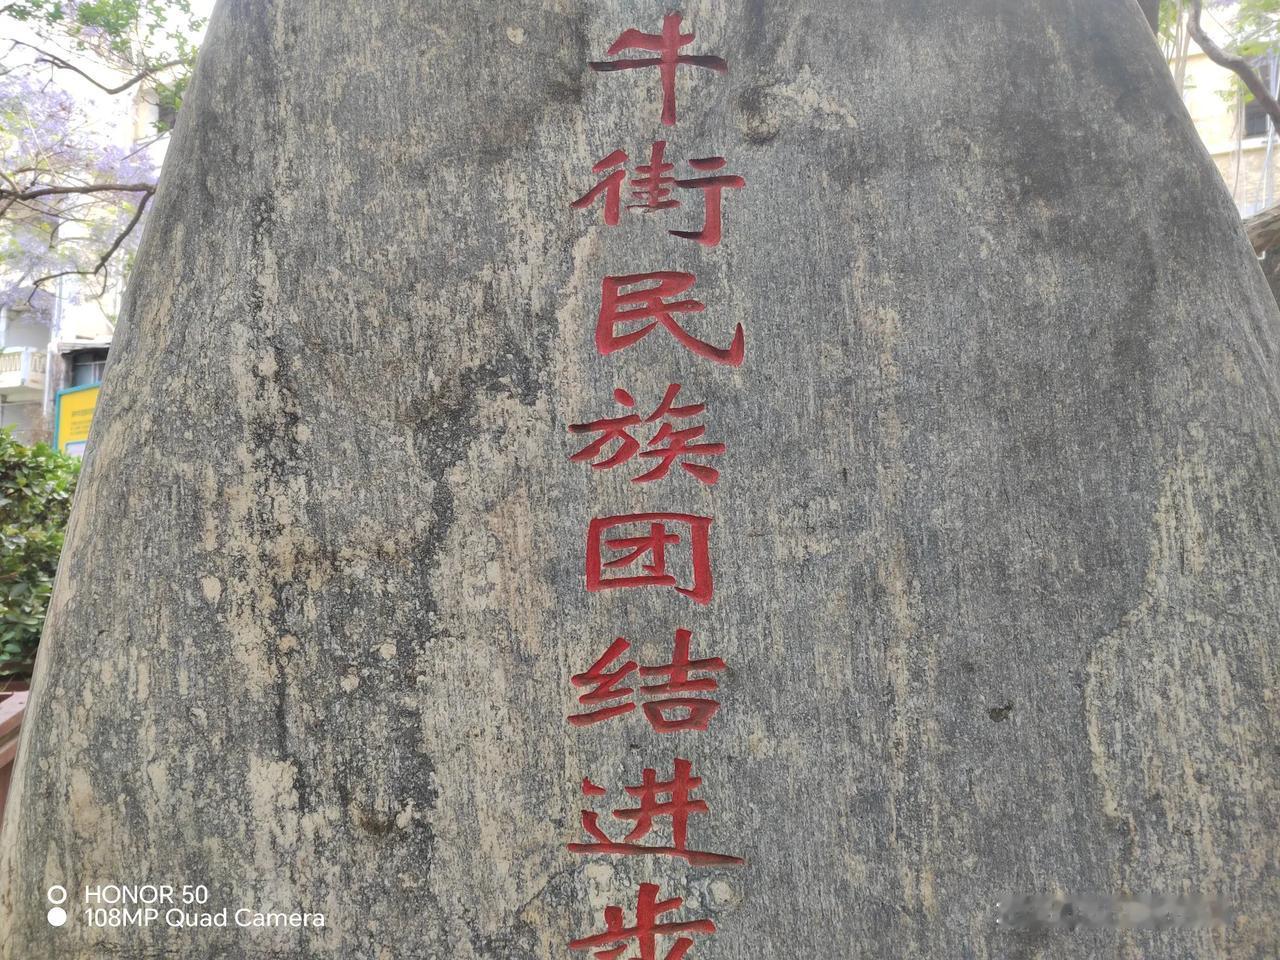 牛街民族团结进步
HONOR 50
108MP Quad Camera